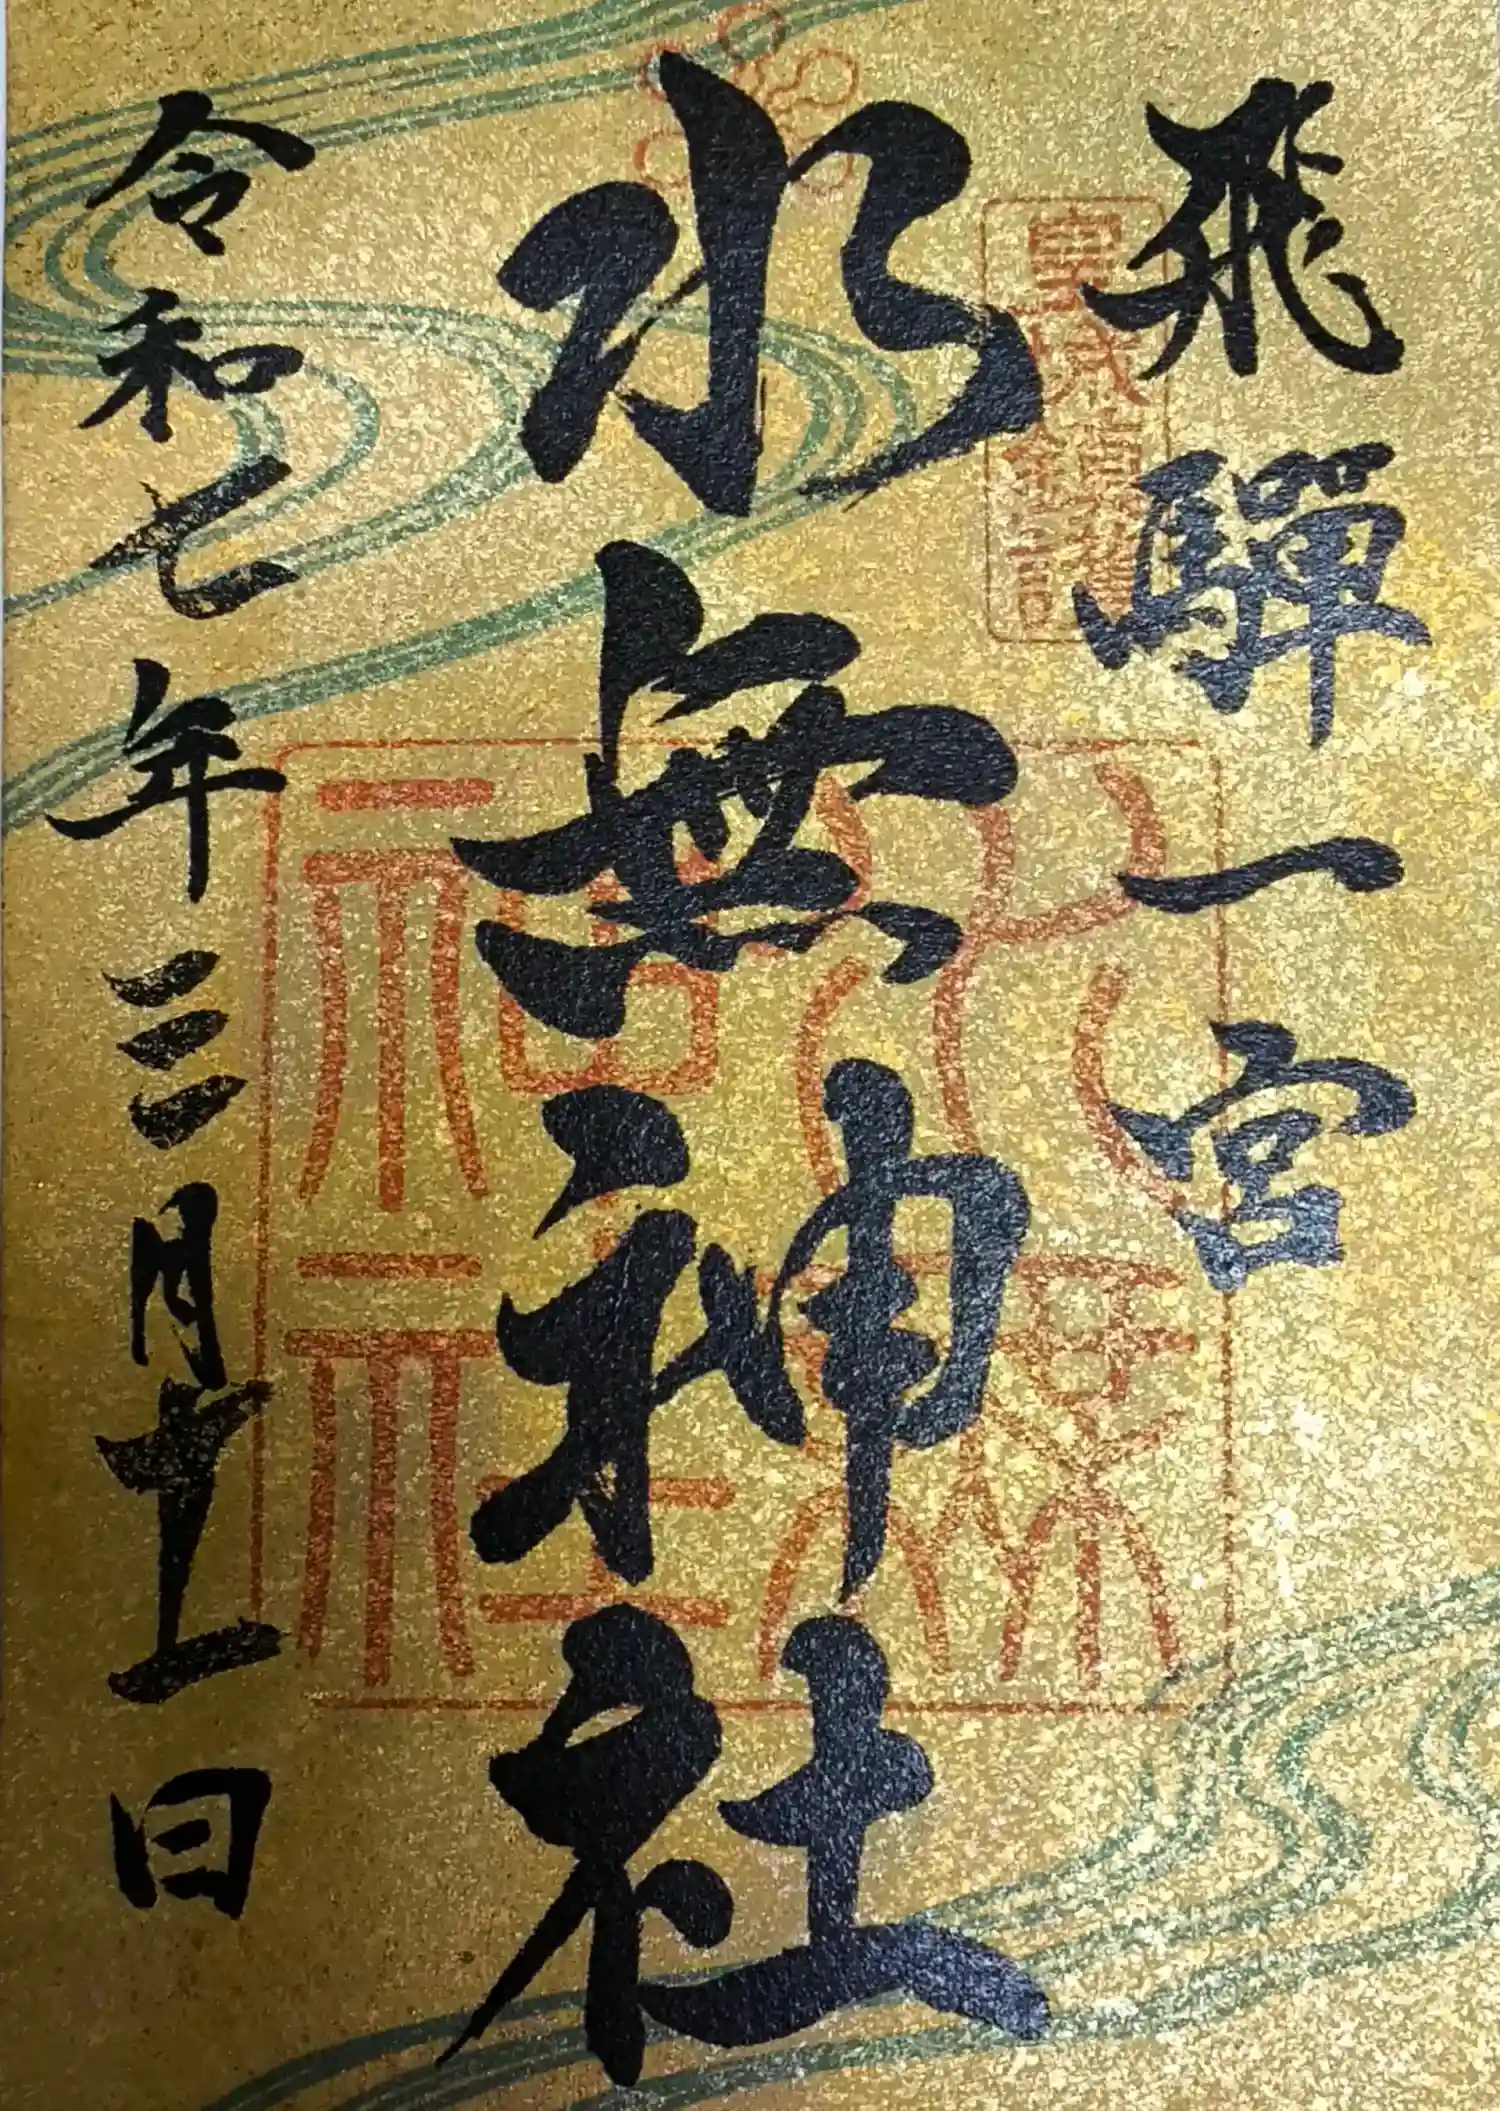 飛騨一宮
水無神社
令和七年三月十一日
水無
神社